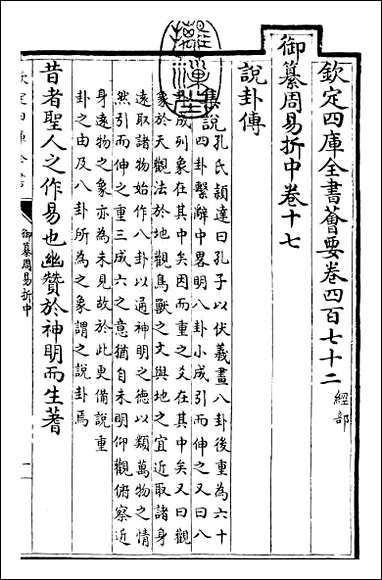 欽定四庫全書薈要卷四百七十二 經部
御纂周易折中卷十七
說卦傳
集說 孔氏穎達曰孔子以伏羲畫八卦後重為六十
四卦繫辭中畧明八卦小成引而伸之又曰八
卦成列象在其中矣因而重之爻在其中矣又曰觀
象於天觀法於地觀鳥獸之文與地之宜近取諸身
遠取諸物始作八卦以通神明之德以類萬物之情
然引而伸之重三成六之意猶自未明仰觀俯察近
身遠物之象亦為未見故於此更備說重
卦之由及八卦所為之象謂之說卦焉
昔者聖人之作易也幽贊於神明而生蓍
欽定四庫全書
御纂周易折中